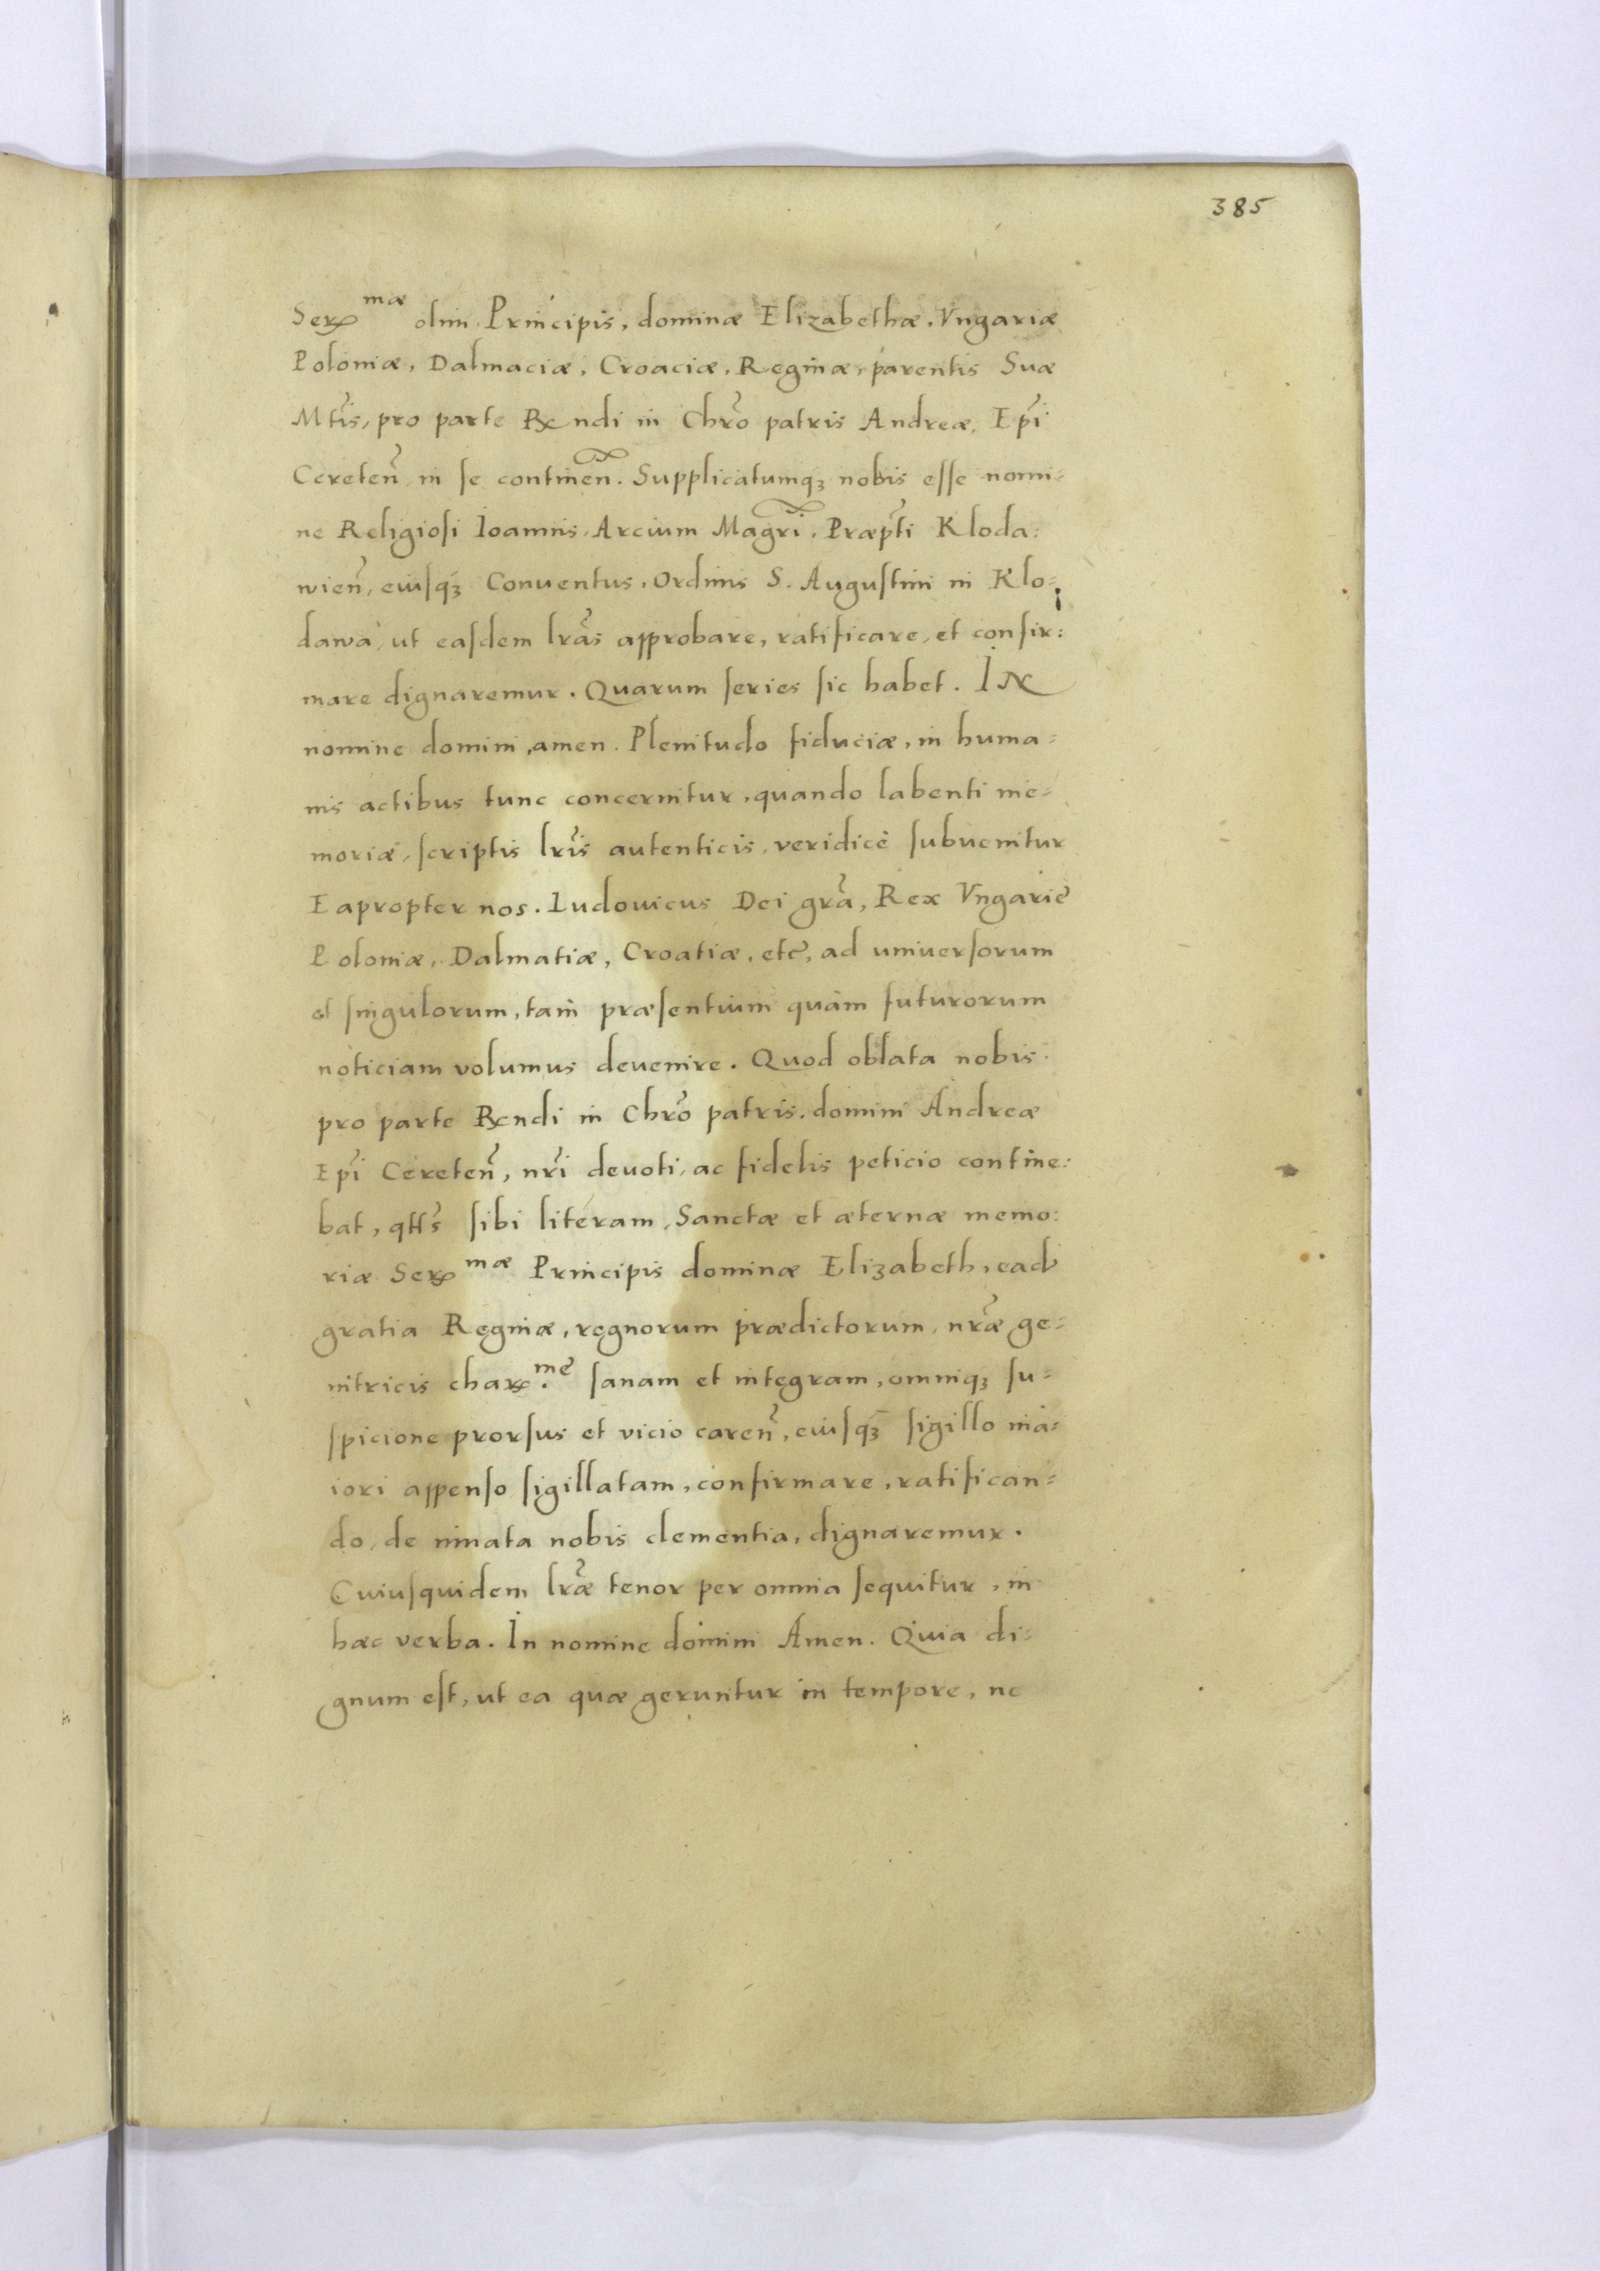 385
Ser^mæ olim Principis, dominæ Elizabethæ, Vngariæ
Poloniæ, Dalmaciæ, Croaciæ, Reginæ, parentis Suæ
Mtis, pro parte Rendi in Chro patris Andreæ, Epi
Cereten in se continen. Supplicatumq; nobis esse nomi=
ne Religiosi Ioannis, Arcium Magri, Præpti Kloda:
wien, eiusq; Conuentus, Ordinis S. Augustini in Klo=
dawa, ut easdem lras approbare, ratificare, et confir:
mare dignaremur. Quarum series sic habet. IN
nomine domini, amen. Plenitudo fiduciæ, in huma=
nis actibus tunc concernitur, quando labenti me=
moriæ, scriptis lris autenticis, veridicè subuenitur
Eapropter nos. Ludouicus Dei gra, Rex Vngarie
Poloniæ, Dalmatiæ, Croatiæ, etc, ad uniuersorum
et singulorum, tam præsentium quàm futurorum
noticiam volumus deuenire. Quod oblata nobis
pro parte Rendi in Chro patris, domini Andreæ
Epi Cereten, nri deuoti, ac fidelis peticio contine:
bat, qtts sibi literam, Sanctæ et æternæ memo:
riæ Ser^mæ Principis dominæ Elizabeth, ead
gratia Reginæ, regnorum prædictorum, nræ ge=
nitricis char^me sanam et integram, omniq; su=
spicione prorsus et vicio caren, eiusq; sigillo ma=
iori appenso sigillatam, confirmare, ratifican=
do, de innata nobis clementia, dignaremur.
Cuiusquidem lræ tenor per omnia sequitur, in
hæc verba. In nomine domini Amen. Quia di=
gnum est, ut ea quæ geruntur in tempore, ne